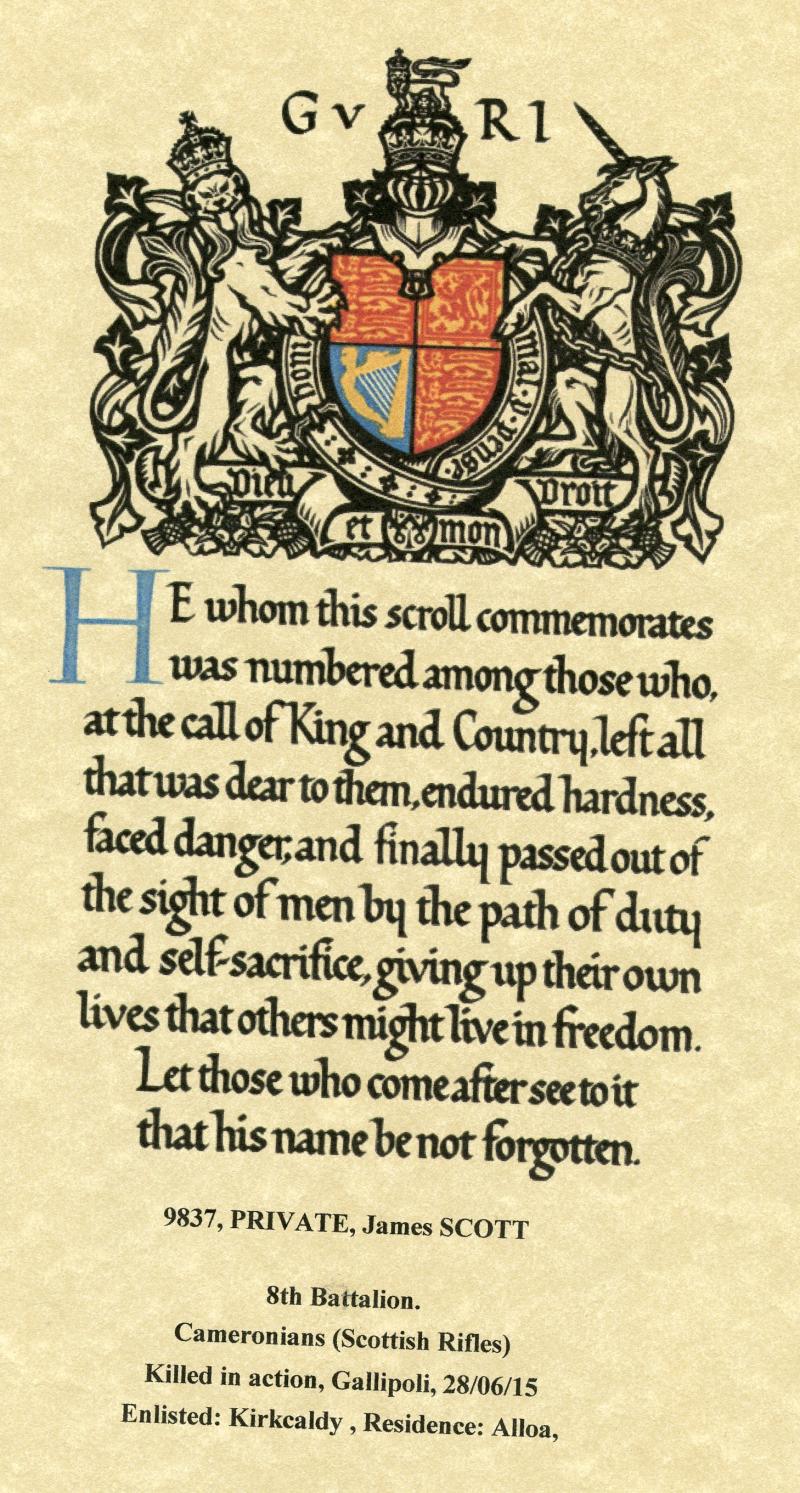 G V R I
honi
mal·y·pense
Dieu
et mon
Droit
HE whom this scroll commemorates
was numbered among those who,
at the call of King and Country, left all
that was dear to them, endured hardness,
faced danger, and finally passed out of
the sight of men by the path of duty
and self-sacrifice, giving up their own
lives that others might live in freedom.
Let those who come after see to it
that his name be not forgotten.
9837, PRIVATE, James SCOTT
8th Battalion.
Cameronians (Scottish Rifles)
Killed in action, Gallipoli, 28/06/15
Enlisted: Kirkcaldy , Residence: Alloa,